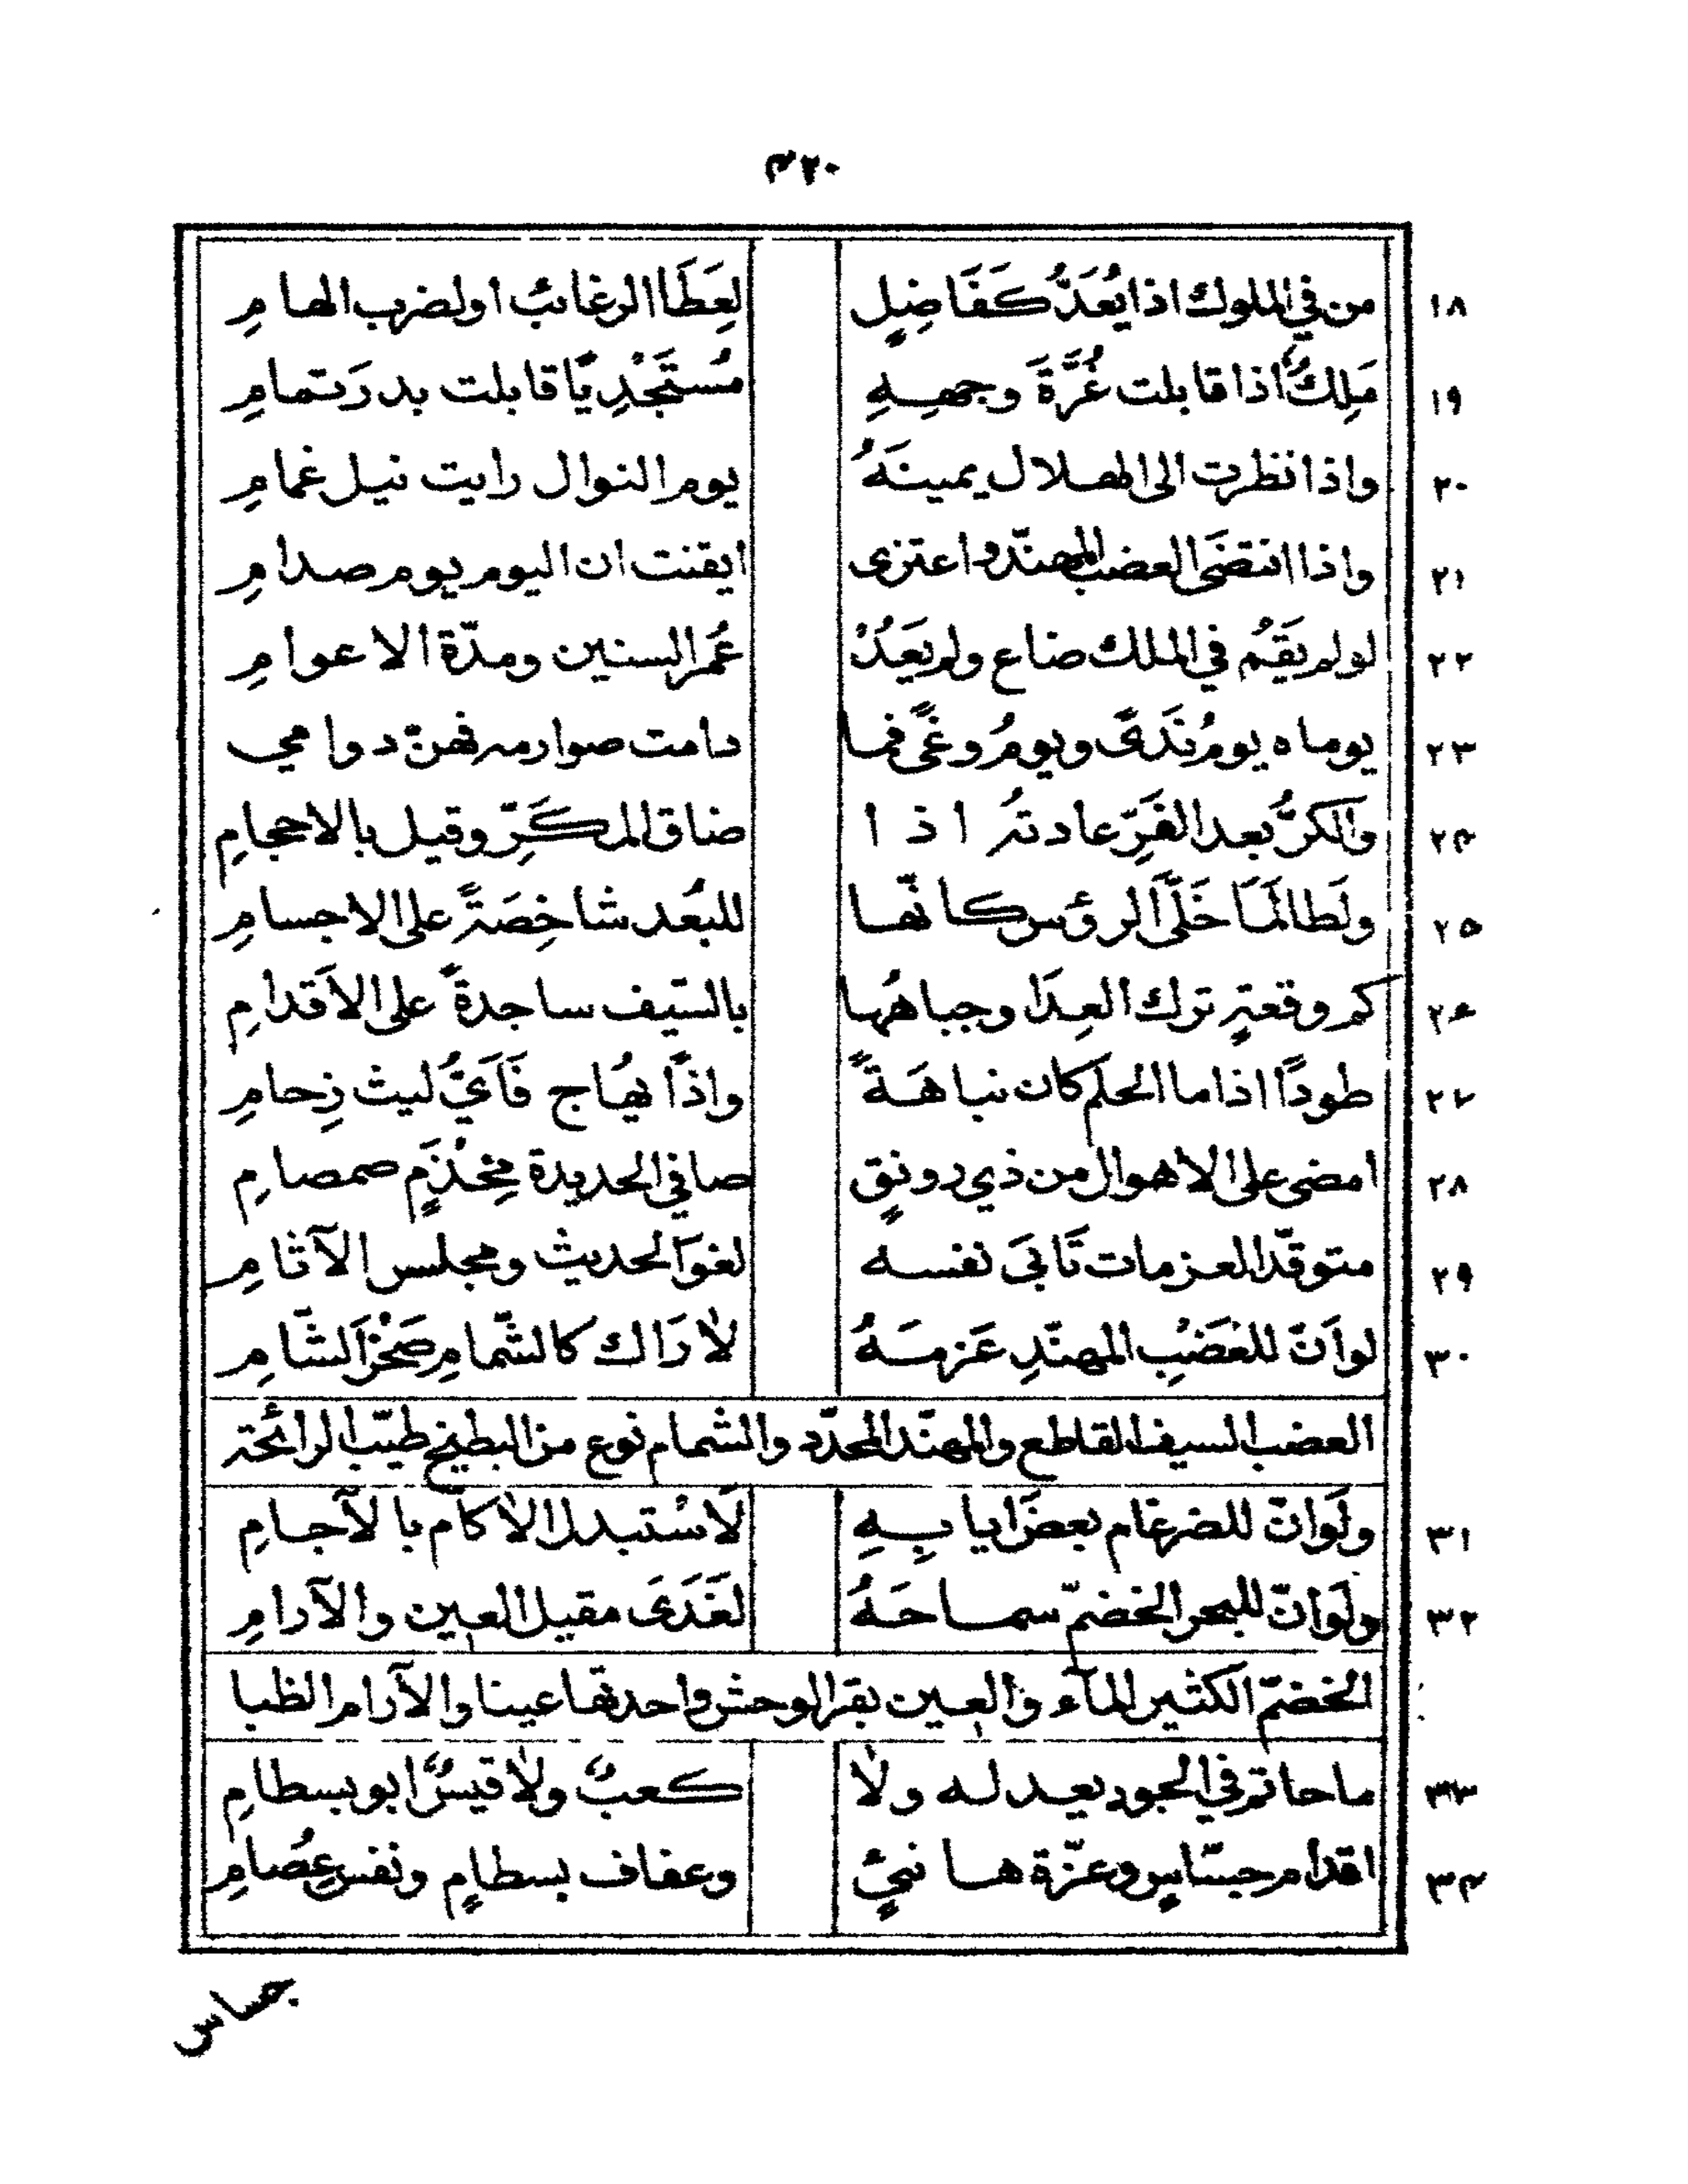 ٤٢٠
١٨ من في الملوك اذا يُعَدُّ كَفَاضِلٍ لعَطَا الرغائب او لضرب الهامِ
١٩ مَلِكٌ اذا قابلت غُرَّةَ وجههِ مُستَجْدِيًا قابلت بدرَ تمامِ
٢٠ واذا نظرت الى الهلال يمينَهُ يوم النوال رايت نيل غمامِ
٢١ واذا انتضَى العضب المهنّد واعتزى ايقنت ان اليوم يوم صدامِ
٢٢ لو لم يَقُم في الملك ضاع ولم يَعُدْ عُمر السنين ومدّة الاعوامِ
٢٣ يوماه يومُ نَدًى ويومُ وغًى فما دامت صوارمه فهنّ دوامي
٢٤ والكرُّ بعد الفَرِّ عادتهُ اذا ضاق المكَرِّ وقيل بالاحجامِ
٢٥ ولَطالَمَا خَلَّى الرؤس كانّها للبُعد شاخِصَةً على الاجسامِ
٢٦ كم وقعةٍ ترك العِدَا وجباهُها بالسّيف ساجدةً على الاَقدامِ
٢٧ طودًا اذا ما الحلم كان نباهَةً واذا يُهَاج فَاَيُّ ليث زِحامِ
٢٨ امضى على الاهوال من ذي رونقٍ صافي الحديدة مِخْذَمٍ صمصامِ
٢٩ متوقّد العزمات تَابَى نفسه لغوَ الحديث ومجلس الآثامِ
٣٠ لو اَنّ للعَضْبِ المهنّدِ عَزمَهُ لاَراك كالشّمامِ صَخْرَ الشّامِ
العضب السيف القاطع والمهنّد المحدّد والشمام نوع من البطيخ طيّب الرائحة
٣١ ولَوانّ للضرغام بعضَ ايابِهِ لاَسْتبدل الاكام بالآجامِ
٣٢ ولَوانّ للبحر الخضمّ سماحَهُ لغَدَى مقيل العين والآرامِ
الخضمّ الكثير المآء والعين بقر الوحش واحدتها عينا والآرام الظبا
٣٣ ما حاتم في الجود يعدله ولا كعبٌ ولا قيسٌ ابو بسطامِ
٣٤ اقدام جسّاسٍ وعزّة هانئٍ وعفاف بسطامٍ ونفس عِصامِ
جساس